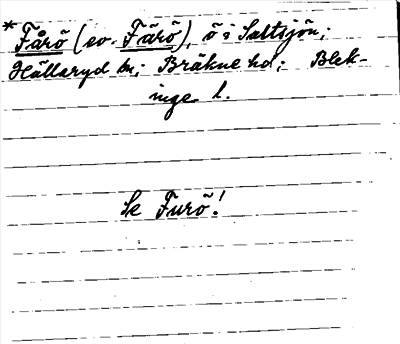 * Fårö (ev. Färö), ö i Saltsjön;
Hällaryd sn; Bräkne hd; Blek-
inge l.
Se Furö!